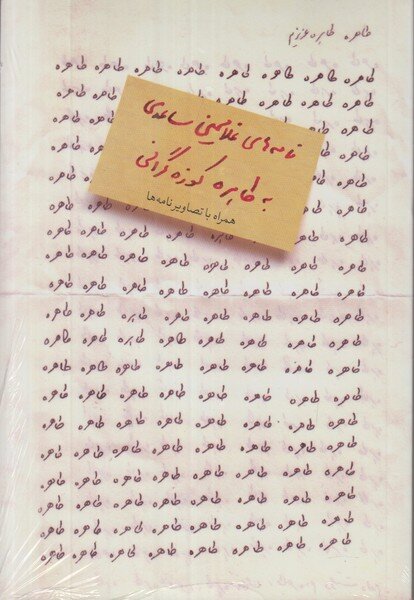 طاهره طاهره عزیزم
طاهره طاهره طاهره طاهره طاهره طاهره طاهره طاهره
طاهره طاهره طاهره طاهره طاهره طاهره طاهره طاهره
طاهره طاهره
طاهره طاهره
طاهره طاهره
طاهره طاهره
نامه‌های غلامحسین ساعدی
به طاهره کوزه‌گرانی
همراه با تصاویر نامه‌ها
طاهره طاهره طاهره طاهره
طاهره طاهره طاهره طاهره طاهره طاهره طاهره طاهره
طاهره طاهره طاهره طاهره طاهره طاهره طاهره طاهره
طاهره طاهره طاهره طاهره طاهره طاهره طاهره طاهره
طاهره طاهره طاهره طاهره طاهره طاهره طاهره طاهره
طاهره طاهره طاهره طاهره طاهره طاهره طاهره طاهره
طاهره طاهره طاهره طاهره طاهره طاهره طاهره طاهره
طاهره طاهره طاهره طاهره طاهره طاهره طاهره طاهره
طاهره طاهره طاهره طاهره طاهره طاهره طاهره طاهره
طاهره طاهره طاهره طاهره طاهره طاهره طاهره طاهره
طاهره طاهره طاهره طاهره طاهره طاهره طاهره طاهره
طاهره طاهره طاهره طاهره طاهره طاهره طاهره طاهره
طاهره طاهره طاهره طاهره طاهره طاهره طاهره طاهره